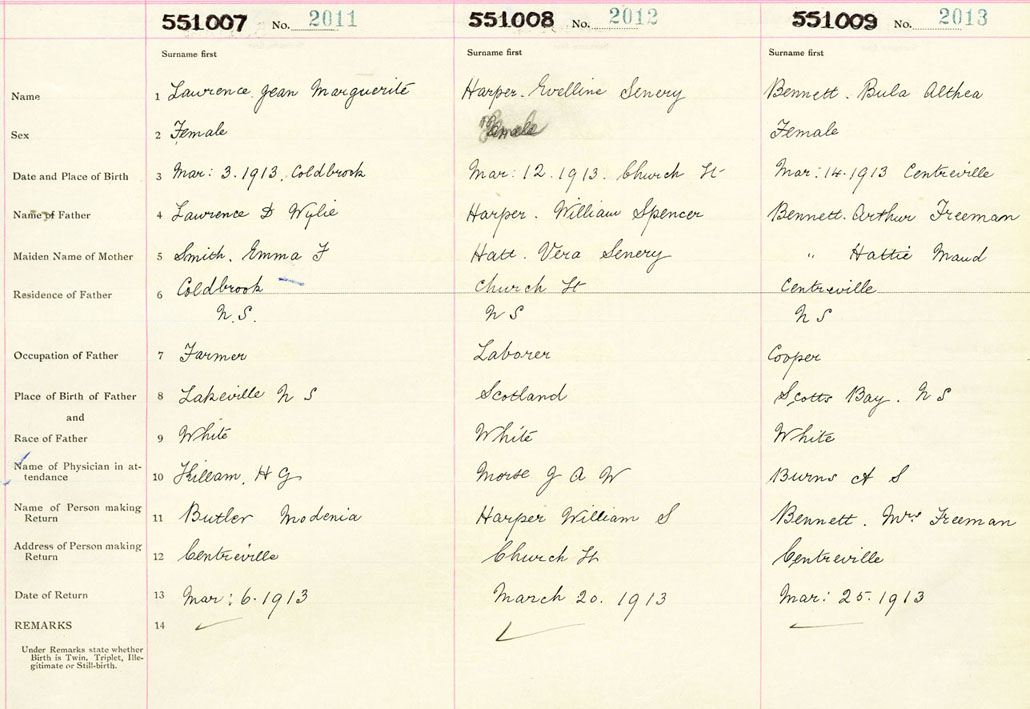 551007 No. 2011 551008 No. 2012 551009 No. 2013
Surname first Surname first Surname first
Name 1 Lawrence Jean Marguerite Harper. Evelline Senery Bennett. Bula Althea
Sex 2 Female Female Female
Date and Place of Birth 3 Mar: 3. 1913, Coldbrook Mar: 12. 1913. Church St Mar: 14. 1913 Centreville
Name of Father 4 Lawrence D Wylie Harper. William Spencer Bennett. Arthur Freeman
Maiden Name of Mother 5 Smith. Emma F Hatt. Vera Senery " Hattie Maud
Residence of Father 6 Coldbrook Church St Centreville
N.S. N S N S
Occupation of Father 7 Farmer Laborer Cooper
Place of Birth of Father 8 Lakeville N S Scotland Scotts Bay. N S
and
Race of Father 9 White White White
Name of Physician in at-
tendance 10 Killam, H G Morse G A W Burns A S
Name of Person making
Return 11 Butler Modenia Harper William S Bennett. Mrs Freeman
Address of Person making
Return 12 Centreville Church St Centreville
Date of Return 13 Mar: 6. 1913 March 20. 1913 Mar: 25. 1913
REMARKS 14
Under Remarks state whether
Birth is Twin, Triplet, Ille-
gitimate or Still-birth.